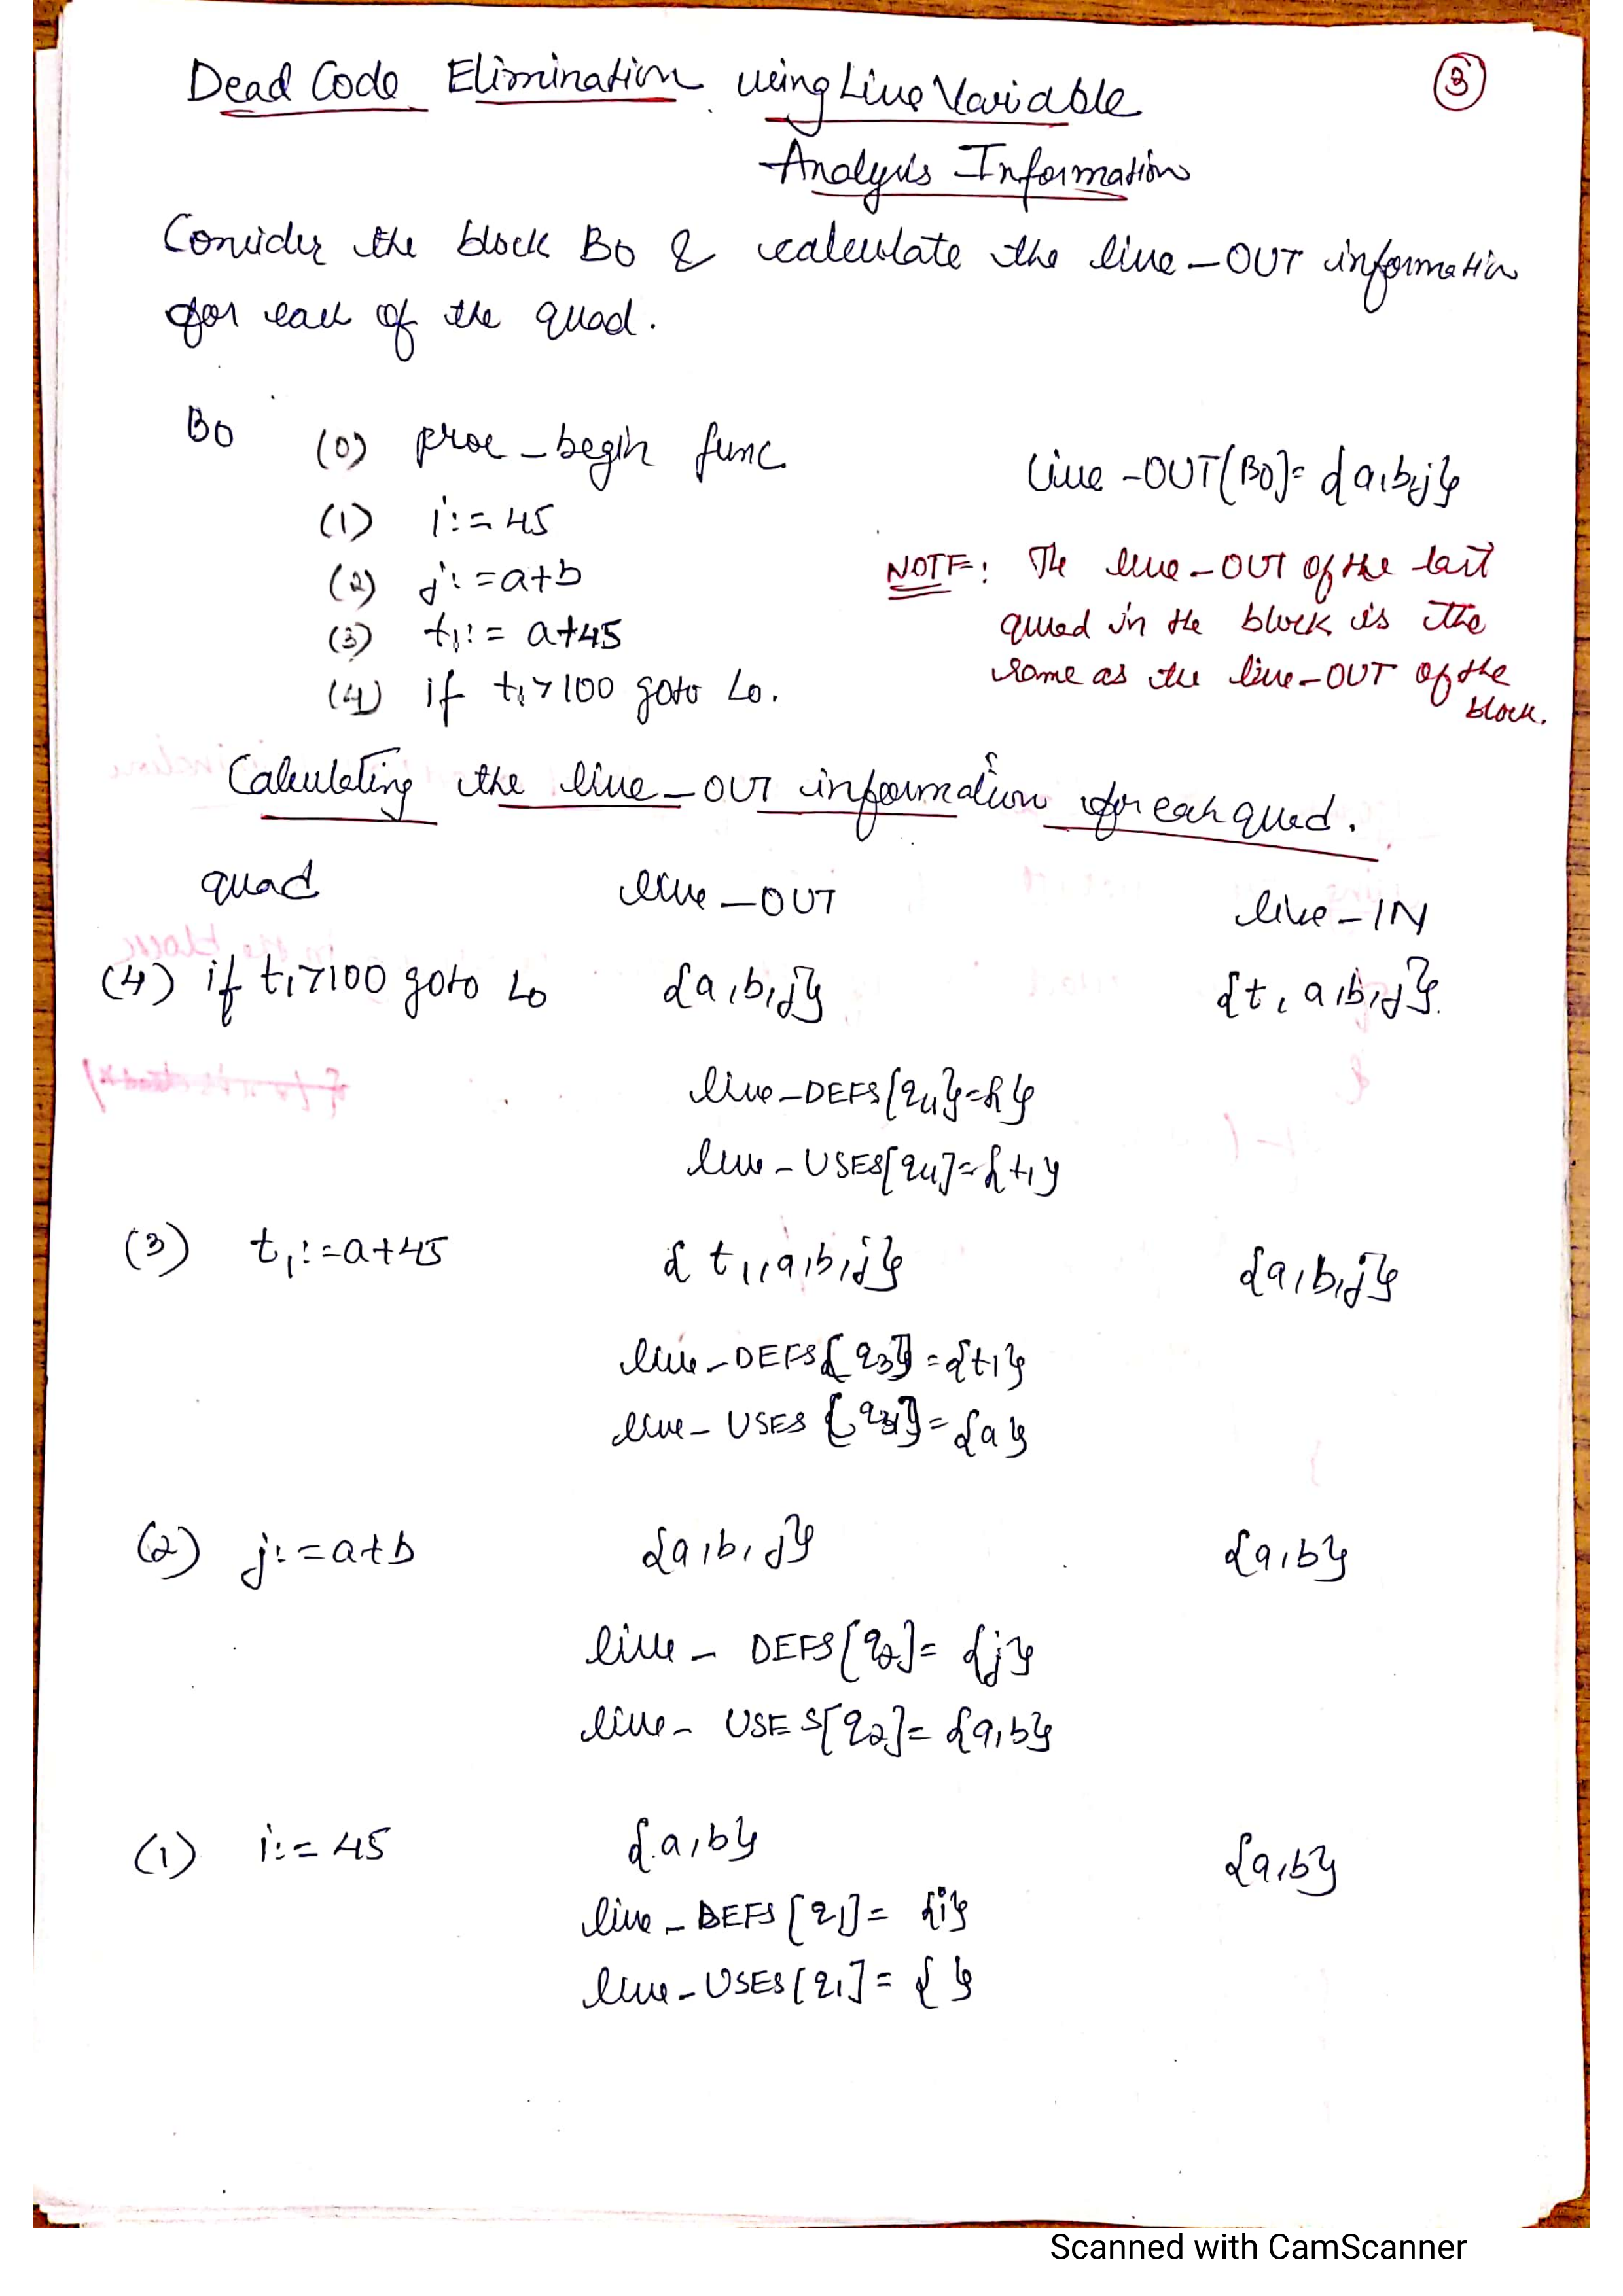 Dead Code Elimination using Live Variable
3
Analysis Information
Consider the block B0 & calculate the live-OUT information
for each of the quad.
B0 (0) proc-begin func
live-OUT[B0]= {a,b,j}
(1) i:=45
(2) j:=a+b
(3) t1:= a+45
(4) if t1>100 goto L0.
NOTE: The live-OUT of the last
quad in the block is the
same as the live-OUT of the
block.
Calculating the live-OUT information for each quad.
quad live-OUT live-IN
(4) if t1>100 goto L0 {a,b,j} {t, a,b,j}.
live-DEFS[q4}={}
live-USES[q4]={t1}
(3) t1:=a+45 {t1,a,b,j} {a,b,j}
live-DEFS[q3]={t1}
live-USES[q3]={a}
(2) j:=a+b {a,b,j} {a,b}
live-DEFS[q2]= {j}
live-USES[q2]= {a,b}
(1) i:=45 {a,b} {a,b}
live-DEFS[q1]= {i}
live-USES[q1]= { }
Scanned with CamScanner